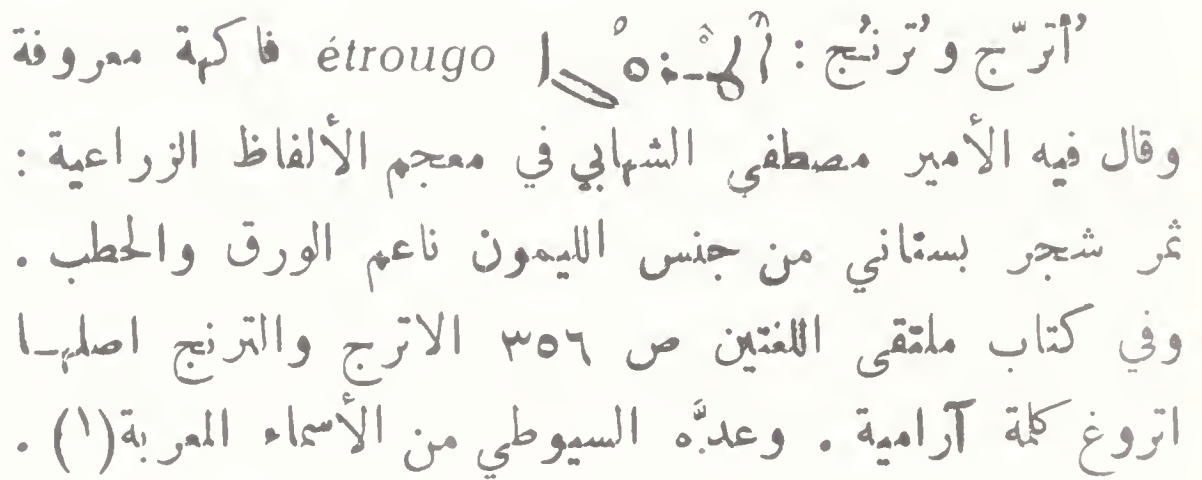 أُترّج وتُرنُج : ܐܶܬܪܽܘܓܳܐ étrougo فاكهة معروفة
وقال فيه الأمير مصطفى الشهابي في معجم الألفاظ الزراعية :
ثمر شجر بستاني من جنس الليمون ناعم الورق والحطب .
وفي كتاب ملتقى اللغتين ص ٣٥٦ الاترج والترنج اصلهـا
اتروغ كلمة آرامية . وعدَّه السيوطي من الأسماء المعربة(١) .